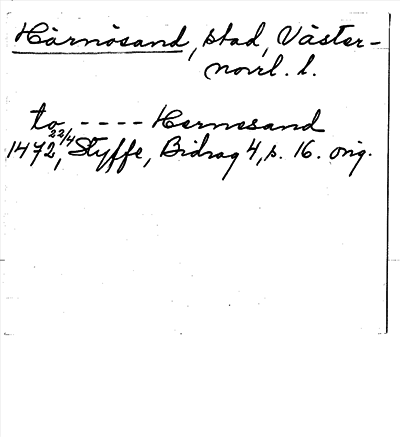 Härnösand, stad, Väster-
norrl. l.
to - - - - Hernesand
1472 22/4, Styffe, Bidrag 4, s. 16. orig.